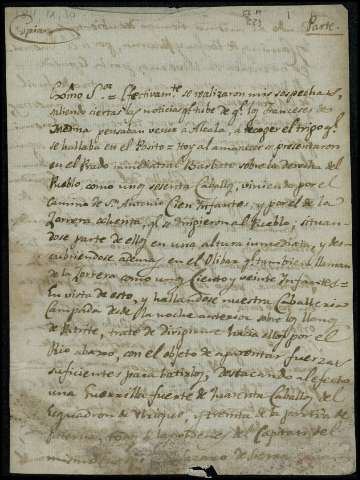 Copia
Parte.
Exmo. Sor. = Efectivamte. se realizaron mis sospechas,
saliendo ciertas las noticias qe. tube de qe. los franceses de
Medina pensaban venir a Alcala, a recoger el trigo qe.
se hallaba en el Posito = Hoy al amanecer se presentaron
en el Prado sobre la derecha del
Pueblo, como unos sesenta Caballos, viniendo por el
camino de Sn. Antonio Cien Infantes, y por el de la
Zorrera ochenta, qe. se dirigieron al Pueblo; situan-
dose parte de ellos en una altura inmediata, y des-
cubriendose ademas en el Olibar qe. tambien llaman
de la Zorrera como unos Ciento y veinte Infantes =
En vista de esto, y hallandose nuestra Caballeria
Campada desde la noche anterior sobre los llanos
de trate de dirigirme hacia ellos por el
Rio abaxo, con el objeto de aparentar fuerzas
suficientes para batirlos, destacando al efecto
una Guerrilla fuerte de quarenta Caballos del
Esquadron de y treinta de la partida de
todos a las ordenes del Capitan del
mismo